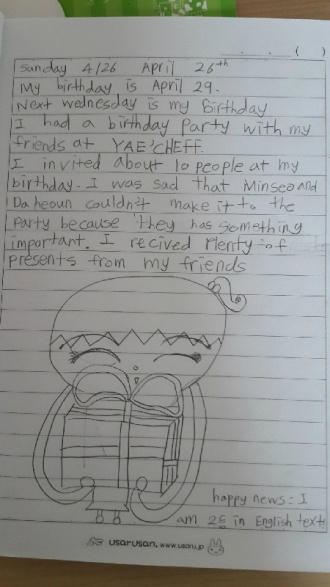 . . ( )
Sunday 4/26 April 26th
My birthday is April 29.
Next wednesday is my birthday
I had a birthday party with my
friends at YAE'CHEFF.
I invited about 10 people at my
birthday. I was sad that Minseo and
Daheoun couldn't make it to the
Party because they has something
important. I recived Plenty of
presents from my friends
happy news : I
am 25 in English text
usarusan. www.usaru.jp